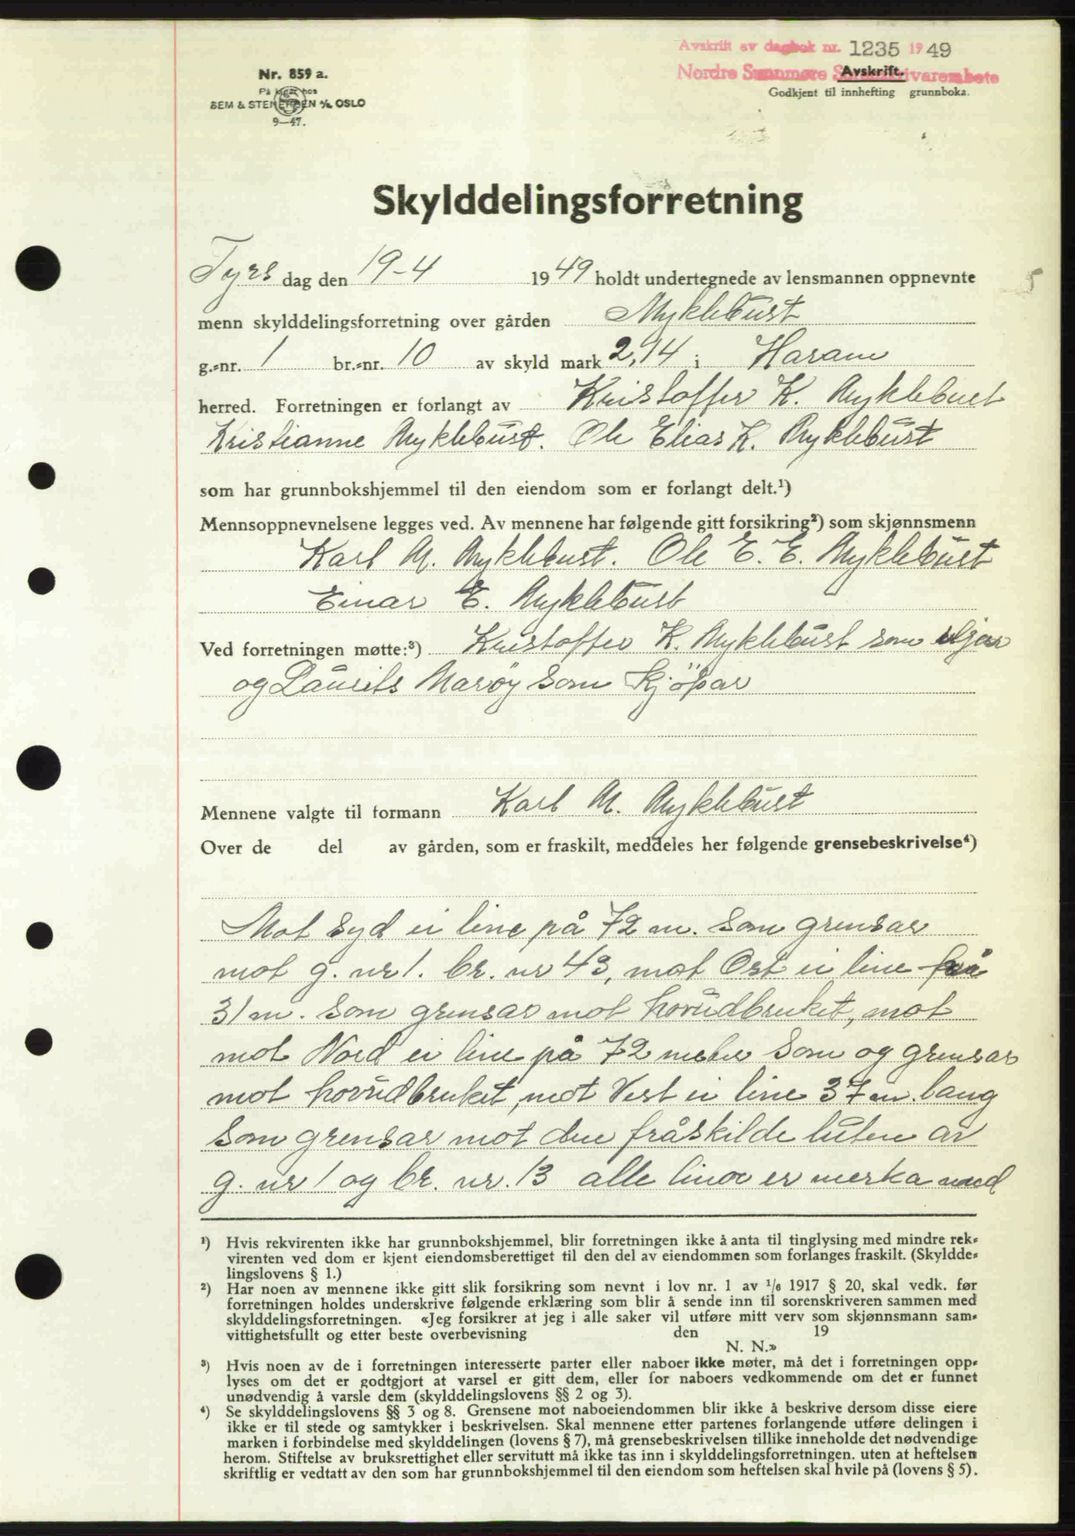 Avskrift av dagbok nr. 1235 1949
Nordre Sunnmøre Sorenskrivarembete
Avskrift.
Godkjent til innhefting grunnboka.
Nr. 859 a.
På lager hos
SEM & STENERSEN A/S OSLO
9—47.
Skylddelingsforretning
Tyrs dag den 19-4 1949 holdt undertegnede av lensmannen oppnevnte
menn skylddelingsforretning over gården Myklebust
g.-nr. 1 br.-nr. 10 av skyld mark 2,14 i Haram
herred. Forretningen er forlangt av Kristoffer K. Myklebust
Kristianne Myklebust. Ole Elias K. Myklebust
som har grunnbokshjemmel til den eiendom som er forlangt delt.¹)
Mennsoppnevnelsene legges ved. Av mennene har følgende gitt forsikring²) som skjønnsmenn
Karl M. Myklebust. Ole E. E. Myklebust
Einar E. Myklebust
Ved forretningen møtte:³) Kristoffer K. Myklebust som seljar
og Laurits Marøy som Kjöpar
Mennene valgte til formann Karl M. Myklebust
Over de del av gården, som er fraskilt, meddeles her følgende grensebeskrivelse⁴)
Mot Syd ei line på 72 m. Som grensar
mot g. nr 1. br. nr 43, mot Ost ei line på
31 m. Som grensar mot hovudbruket, mot
mot Nord ei line på 72 meter Som og grensar
mot hovudbruket, mot Vest ei line 37 m. lang
Som grensar mot den fråskilde luten av
g. nr 1 og br. nr. 13 alle linor er merka med
¹) Hvis rekvirenten ikke har grunnbokshjemmel, blir forretningen ikke å anta til tinglysing med mindre rek-
virenten ved dom er kjent eiendomsberettiget til den del av eiendommen som forlanges fraskilt. (Skyldde-
lingslovens § 1.)
²) Har noen av mennene ikke gitt slik forsikring som nevnt i lov nr. 1 av 1/6 1917 § 20, skal vedk. før
forretningen holdes underskrive følgende erklæring som blir å sende inn til sorenskriveren sammen med
skylddelingsforretningen. «Jeg forsikrer at jeg i alle saker vil utføre mitt verv som skjønnsmann sam-
vittighetsfullt og etter beste overbevisning den 19
N. N.»
³) Hvis noen av de i forretningen interesserte parter eller naboer ikke møter, må det i forretningen opp-
lyses om det er godtgjort at varsel er gitt dem, eller for naboers vedkommende om det er funnet
unødvendig å varsle dem (skylddelingslovens §§ 2 og 3).
⁴) Se skylddelingslovens §§ 3 og 8. Grensene mot naboeiendommen blir ikke å beskrive dersom disse eiere
ikke er til stede og samtykker i beskrivelsen. Skal mennene etter partenes forlangende utføre delingen i
marken i forbindelse med skylddelingen (lovens § 7), må grensebeskrivelsen tillike inneholde det nødvendige
herom. Stiftelse av bruksrettighet eller servitutt må ikke tas inn i skylddelingsforretningen, uten at heftelsen
skriftlig er vedtatt av den som har grunnbokshjemmel til den eiendom som heftelsen skal hvile på (lovens § 5).